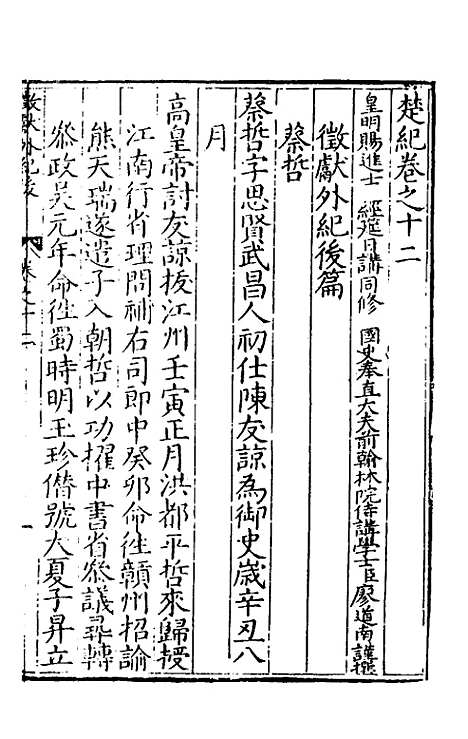 楚紀卷之十二
皇明賜進士 經筵日講同修 國史奉直大夫前翰林院侍講學士臣廖道南謹撰
徵獻外紀後篇
蔡哲
蔡哲字思賢武昌人初仕陳友諒為御史歲辛丑八
月
高皇帝討友諒拔江州壬寅正月洪都平哲來歸授
江南行省理問補右司郎中癸卯命徃贛州招諭
熊天瑞遂遣子入朝哲以功擢中書省叅議尋轉
叅政吳元年命徃蜀時明玉珍僭號大夏子昇立
徵獻外紀後 卷之十二 一